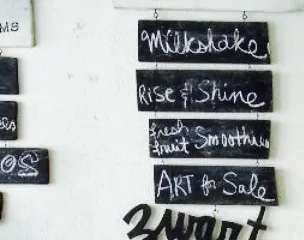 MS
Milkshake
Rise & Shine
fresh
fruit Smoothies
ART for Sale
zwart